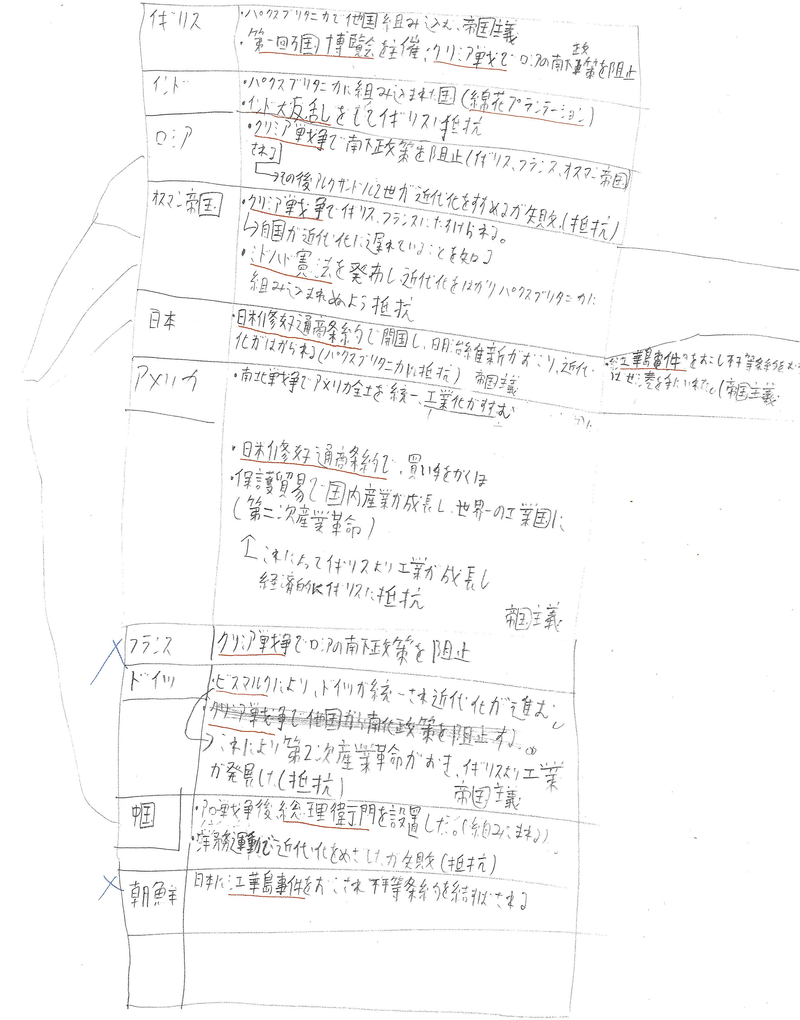 イギリス
・パクスブリタニカで他国組み込む、帝国主義
・第一回万国博覧会を主催;クリミア戦でロシアの南下政策を阻止
インド
・パクスブリタニカに組み込まれた国(綿花プランテーション)
・インド大反乱をしてイギリスに抵抗
ロシア
・クリミア戦争で南下政策を阻止(イギリス、フランス、オスマン帝国
される
→その後アレクサンドル2世が近代化をすすめるが失敗(抵抗)
オスマン帝国
・クリミア戦争でイギリス、フランスにたすけられる。
↳自国が近代化に遅れていることを知る
・ミドハト憲法を発布し近代化をはかりパクスブリタニカに
組み込まれぬよう抵抗
日本
・日米修好通商条約で開国し、明治維新がおこり、近代
化がはかられる(パクスブリタニカに抵抗) 帝国主義
江華島事件をおこし不平等条約をむ
(帝国主義
アメリカ
・南北戦争でアメリカ全土を統一、工業化がすすむ
・日米修好通商条約で、買い手をかくほ
・保護貿易で国内産業が成長し、世界一の工業国に
(第二次産業革命)
↑これによってイギリスより工業が成長し
経済的にイギリスに抵抗
帝国主義
フランス
クリミア戦争でロシアの南下政策を阻止
ドイツ
・ビスマルクにより、ドイツが統一され近代化が進む
→これにより第2次産業革命がおき、イギリスより工業
が発展した(抵抗)
帝国主義
中国
・アロー戦争後総理衙門を設置した。(組みこまれる)
・洋務運動で近代化をめざしたが失敗(抵抗)
朝鮮
日本に江華島事件をおこされ不平等条約を結ばされる